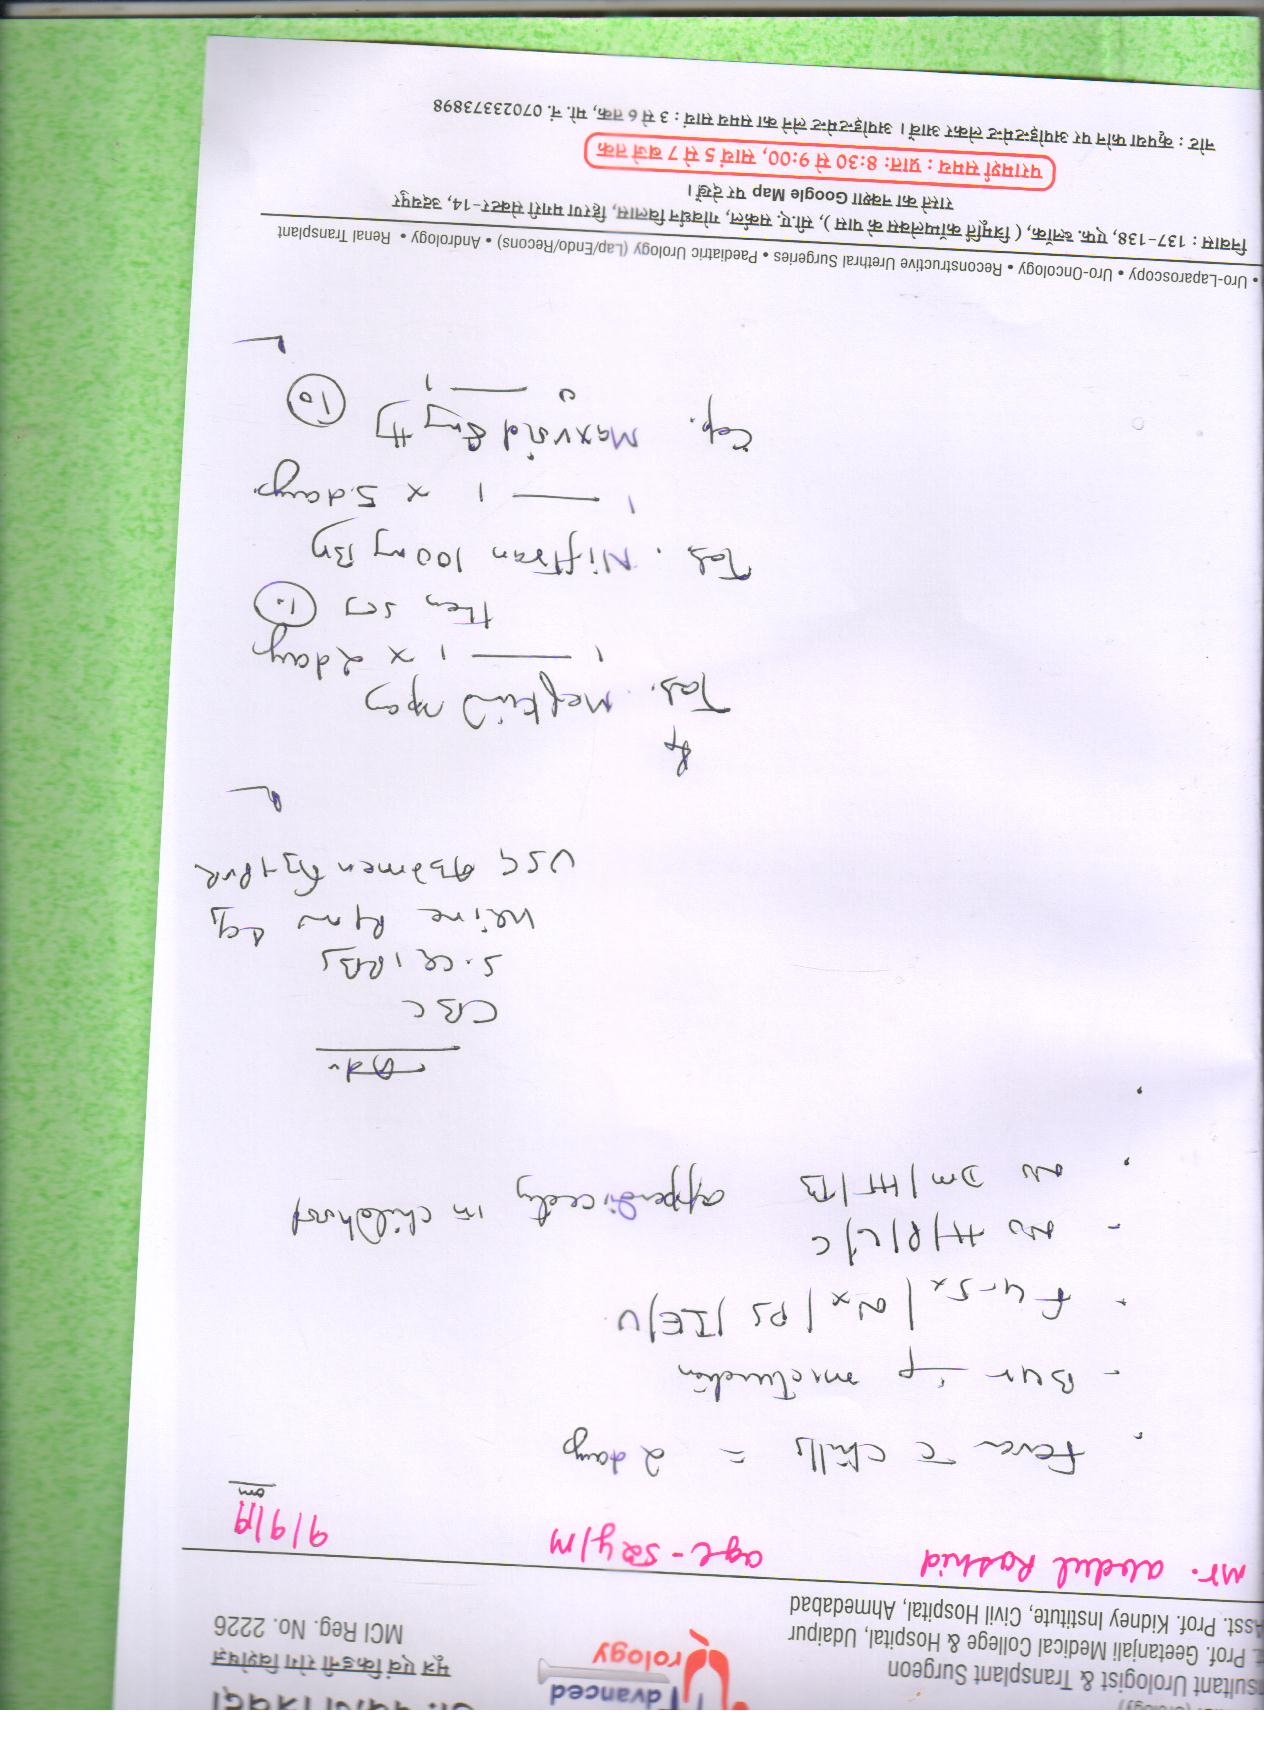 Advanced
Urology
मूत्र एवं किडनी रोग विशेषज्ञ
MCI Reg. No. 2226
nsultant Urologist & Transplant Surgeon
t. Prof. Geetanjali Medical College & Hospital, Udaipur
Asst. Prof. Kidney Institute, Civil Hospital, Ahmedabad
Mr. abdul Rashid age - 52y/M 9/9/19
Fever c chills = 2 days
- Bur micturition
No H/P/L/C
No DM/HT/TB appendicectomy in childhood
Adv
CBC
S. Cr, RBS
Urine
USG Abdomen PVR
Rx
Tab. 
1 — 1 x 2 days
then SOS 10
Tab. Niftran 100 mg
1 — 1 x 5 days
Cap. Maxvoid 8 mg 10
0 — 1
• Uro-Laparoscopy • Uro-Oncology • Reconstructive Urethral Surgeries • Paediatric Urology (Lap/Endo/Recons) • Andrology • Renal Transplant
निवास : 137-138, एफ. ब्लॉक, ( त्रिमूर्ति कॉम्पलेक्स के पास ), सी.ए. सर्कल, गोवर्धन विलास, हिरण मगरी सेक्टर-14, उदयपुर
रास्ते का नक्शा Google Map पर देखें।
परामर्श समय : प्रातः 8:30 से 9:00, सायं 5 से 7 बजे तक
नोट : कृपया फोन पर अपोइन्टमेन्ट लेकर आवें। अपोइन्टमेन्ट लेने का समय सायं : 3 से 6 तक, मो. नं. 07023373898